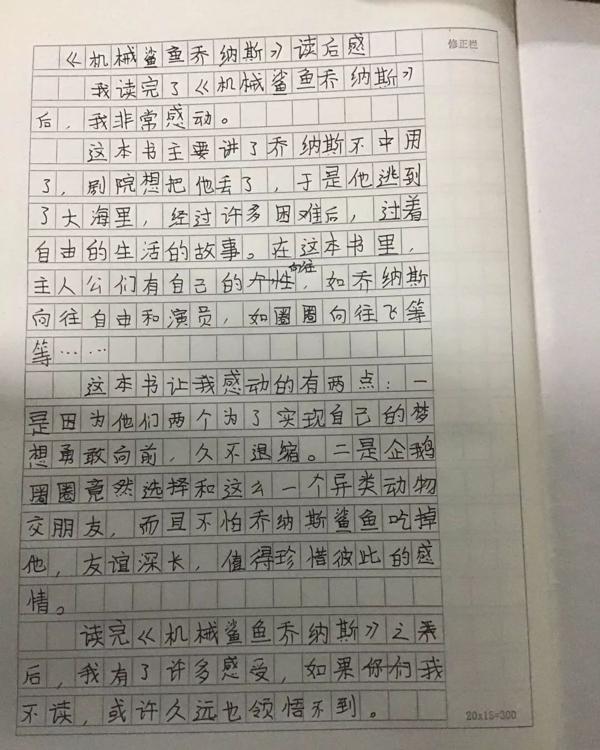 《机械鲨鱼乔纳斯》读后感
修正栏
我读完了《机械鲨鱼乔纳斯》
后，我非常感动。
这本书主要讲了乔纳斯不中用
了，剧院想把他丢了，于是他逃到
了大海里，经过许多困难后，过着
自由的生活的故事。在这本书里，
主人公们有自己的向往，如乔纳斯
向往自由和演员，如圈圈向往飞等
等……
这本书让我感动的有两点：一
是因为他们两个为了实现自己的梦
想勇敢向前，久不退缩。二是企鹅
圈圈竟然选择和这么一个异类动物
交朋友，而且不怕乔纳斯鲨鱼吃掉
他，友谊深长，值得珍惜彼此的感
情。
读完《机械鲨鱼乔纳斯》之
后，我有了许多感受，如果我
不读，或许久远也领悟不到。
20×15=300